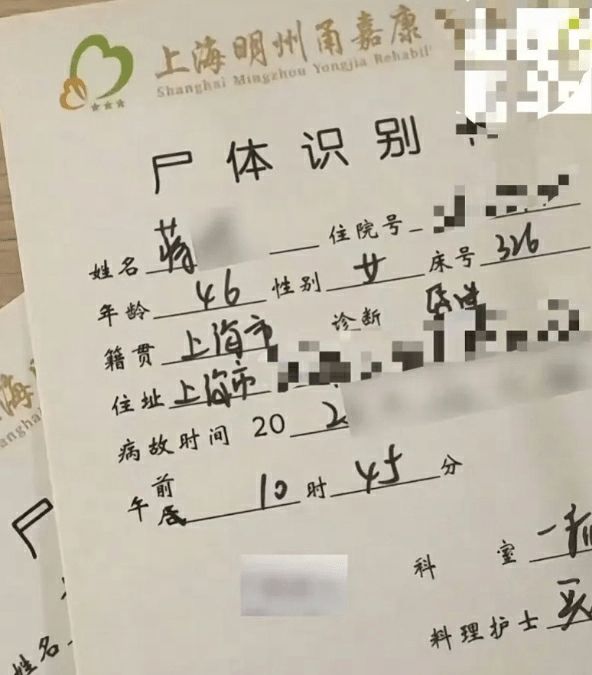 上海明州甬嘉康
Shanghai Mingzhou Yongjia Rehabil
尸体识别
姓名 蒋 住院号
年龄 46 性别 女 床号 326
籍贯 上海市 诊断
住址 上海市
病故时间 20 2
午前后 10 时 45 分
科室 一
料理护士
尸
姓名